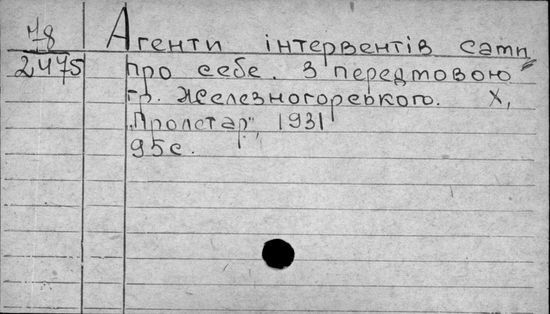 Ч8
2475
Агенти інтервентів сами
про себе. З передмовою
гр. Железногорського. Х,
„Пролетар", 1931
95с.